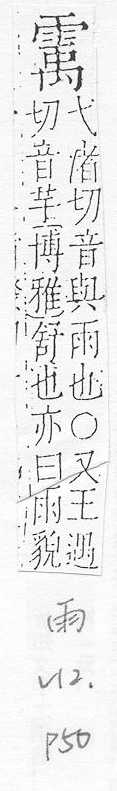 弋渚切音與雨也○又王遇
切音芋博雅舒也亦曰雨貌
雨
V12.
P50